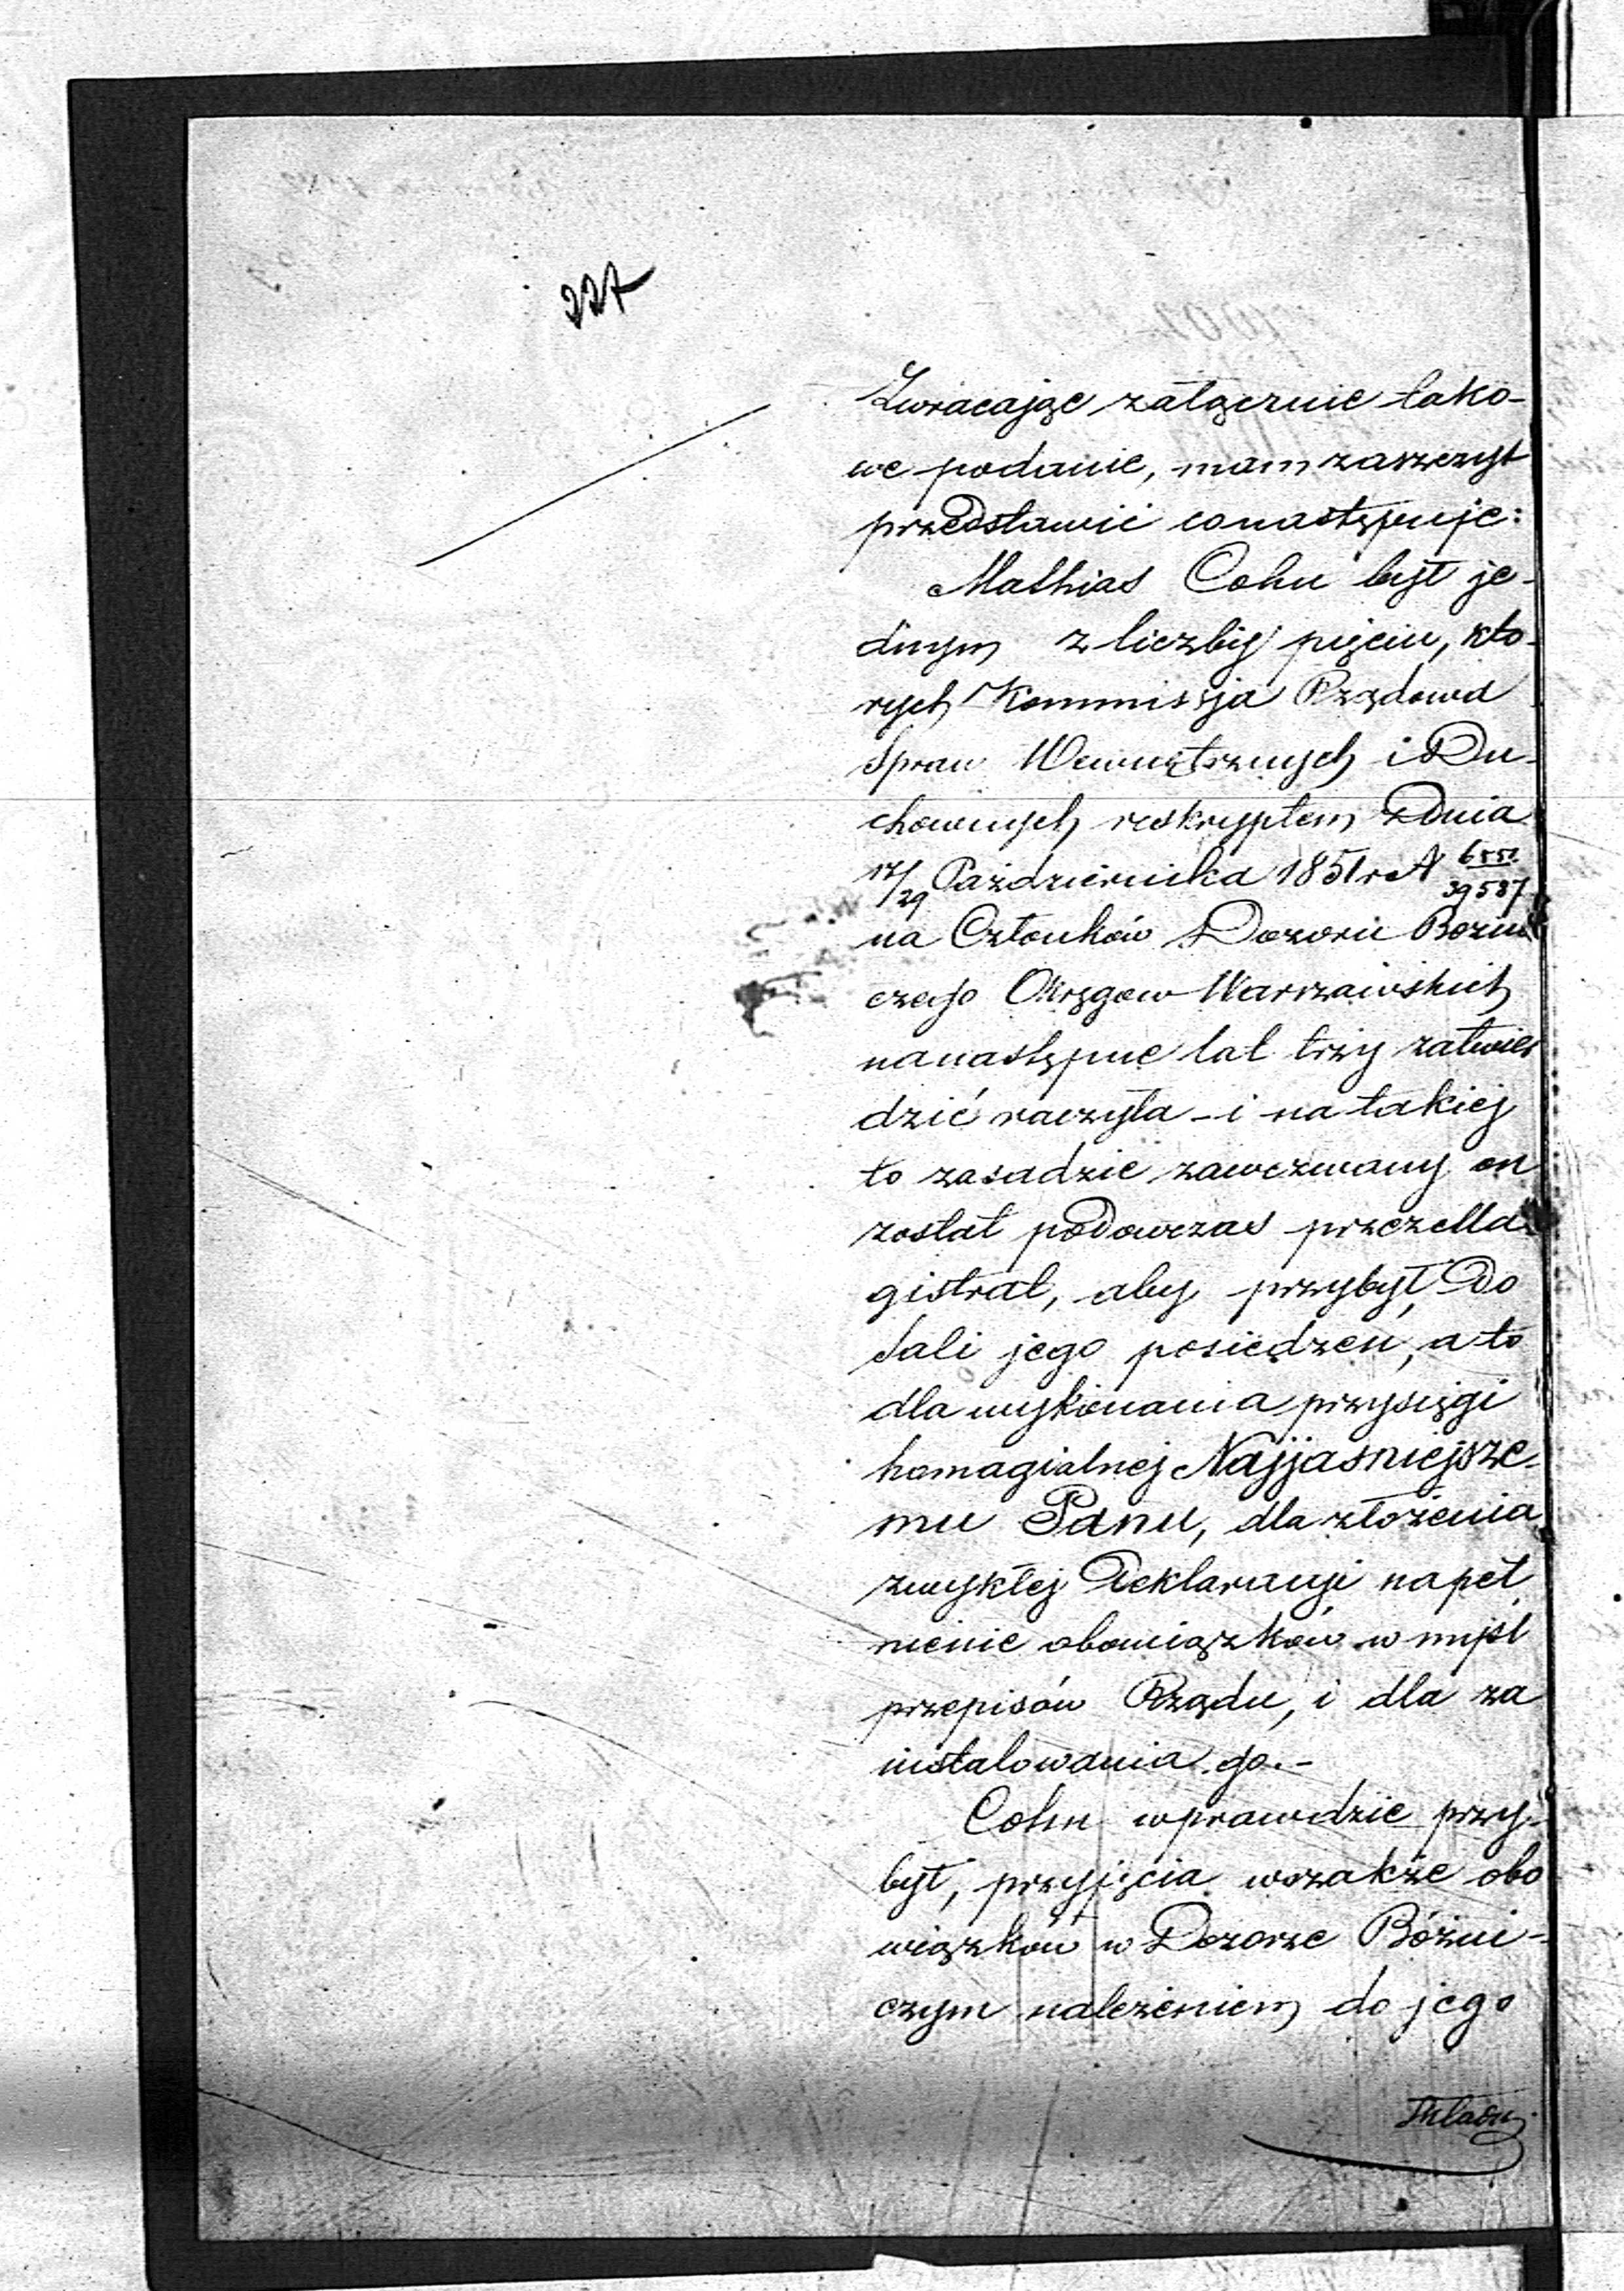 227
Zwracając załącznie tako-
we podanie, mam zaszczyt
przedstawić co następuje:
Mathias Cohn był je-
dnym z liczby pięciu, kto-
rych Kommissja Rządowa
Spraw Wewnętrznych i Du-
chownych reskryptem z dnia
17/29 Października 1851 r N 39587
na Członków Dozoru Bożni
czego Okręgow Warszawskich
na następne lat trzy zatwier
dzić raczyła - i na takiej
to zasadzie zawezwany on
został podowczas przez Ma
gistrat, aby przybył do
Sali jego posiedzeń, a to
dla wykonania przysięgi
homagialnej Najjasniejsze-
mu Panu, dla złożenia
zwykłej Deklaracyi na peł
nienie obowiązków w myśl
przepisów Rządu, i dla za
instalowania go.-
Cohn wprawdzie przy-
był, przyjęcia wszakże obo
wiązków w Dozorze Bóżni-
czym należeniem do jego